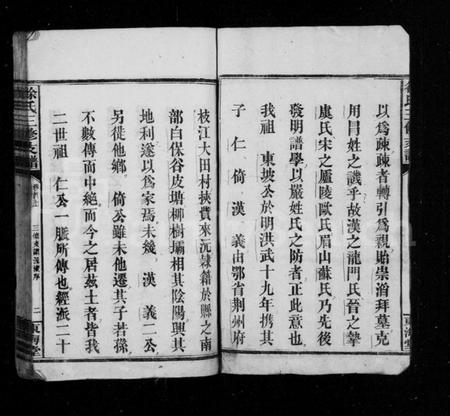 以爲疎疎者轉引爲親貽崇濳拜墓克
用冒姓之譏乎故漢之龍門氏晉之摯
虞氏宋之廬陵歐氏眉山蘇氏乃先後
發明譜學以嚴姓氏之防者正此意也
我祖 東坡公於明洪武十九年携其
子 仁倚漢義由鄂省荆州府
徐氏三修支譜
三修支譜源流序
二
東海堂
枝江大田村挾費來沅隸籍於縣之南
部白保谷皮塘柳樹塥相其陰陽興其
地利遂以爲家焉未幾 漢 義二公
另徙他鄉 倚公雖未他遷其子若孫
不數傳而中絶而今之居兹土者皆我
二世祖 仁公一脈所傳也經派二十